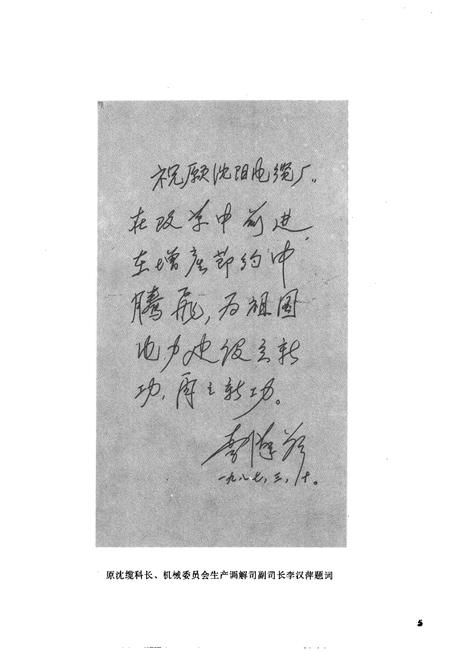 祝愿沈阳电缆厂。
在改革中前进
在增产节约中
腾飞，为祖国
电力建设立新
功，再立新功。
一九八七，三，十。
原沈缆科长、机械委员会生产调解司副司长李汉萍题词
5